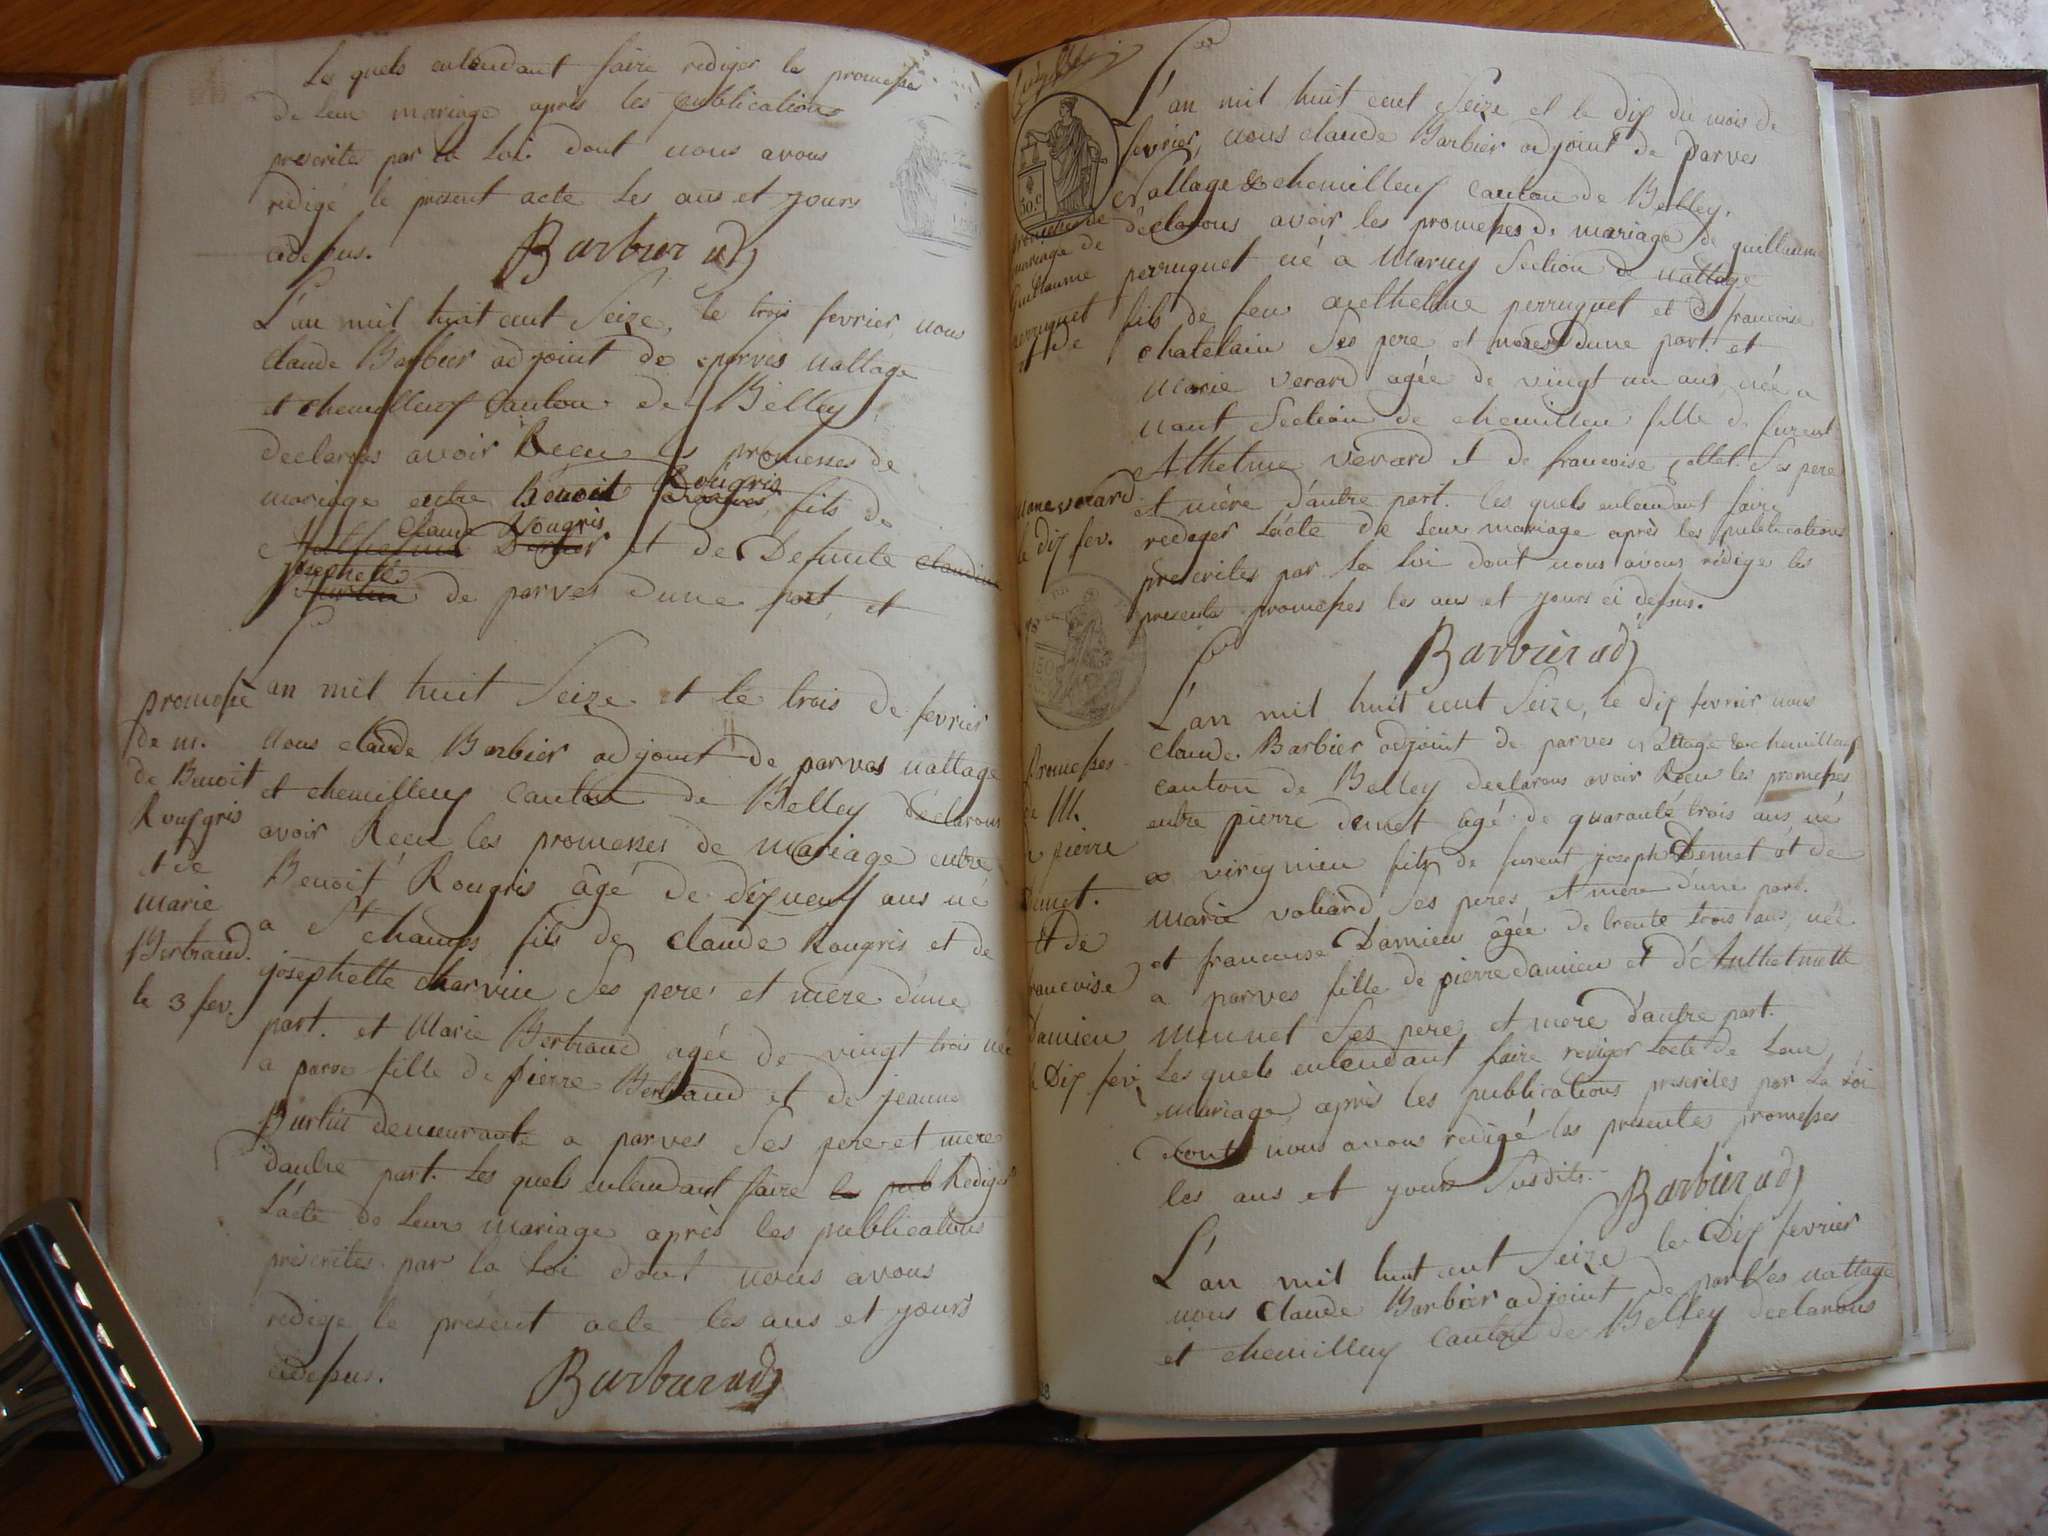 Les quels entendant faire rediger les promesses
de leur mariage après les publications
prescrites par la Loi. dont nous avons
redigé le présent acte les ans et jours
cidessus. Barbier adj
L'an mil huit cent Seize, le trois fevrier, nous
claude Barbier adjoint de parves nattage
et chemilleux Canton de Belley
declarons avoir Recu les promesses de
mariage entre Benoit Rougris fils de
Claude Vougris et de Defunte claudine
josephette de parves d'une part, et
promesse
de m.
de Benoit
Rousgris
et de
Marie
Bertrand.
le 3 fev.
an mil huit Seize et le trois de fevrier
Nous claude Barbier adjoint de parves nattage
et chemilleux canton de Belley déclarons
avoir Recu les promesses de mariage entre
Benoit Rougris âgé de dixneuf ans né
a St champs, fils de claude Rougris et de
josephette charvin Ses pere et mere d'une
part. et Marie Bertrand agée de vingt trois née
a parve fille de pierre Bertrand et de jeanne
Burtin demeurante a parves Ses pere et mere
d'autre part. Les quels entendant faire les pub Rediger
L'acte de Leur mariage après les publications
préscrites par la Loi dont nous avons
redigé le présent acte les ans et jours
cidessus. Barbier adj
L'an mil huit cent Seize et le dix du mois de
fevrier, nous claude Barbier adjoint de parves
Nattage & chemilleux canton de Belley.
déclarons avoir les promesses de mariage de guillaume
perruquet né a Marny Section de nattage
fils de feu anthelme perruquet et de francoise
chatelain Ses pere et mere d'une part. et
Marie verard agée de vingt un ans, née a
nant Section de chemilleu fille de furent
Athelme verard et de francoise collet. Ses pere
et mère d'autre part. les quels entendant faire
rediger L'acte de Leur mariage après les publications
préscrites par la Loi dont nous avons rédigé les
presentes promesses les ans et jours ci dessus.
Barbier adj
promesse de
mariage de
Guillaume
perruquet
et de
Marie verard
le dix fev.
L'an mil huit cent Seize, le dix fevrier nous
claude Barbier adjoint de parves Nattage & chemilleux
canton de Belley declarons avoir Recu les promesses
entre pierre demet âgé de quarante trois ans né
a virignieu fils de furent joseph Demet et de
Marie voliard Ses peres et mère d'une part.
et francoise Damieu âgée de trente trois ans, née
a parves fille de pierre damieu et d'Anthelmette
Munnet Ses pere et mere d'autre part.
Les quels entendant faire rediger L'acte de Leur
mariage, après les publications prescrites par La Loi
dont nous avons redigé les presentes promesses
les ans et jour Susdits. Barbier adj
Promesses
de M.
de pierre
Demet.
et de
francoise
damieu
le Dix fev.
L'an mil huit cent Seize le Dix fevrier
nous Claude Barbier adjoint de parves nattage
et chemilleux canton de Belley declarons